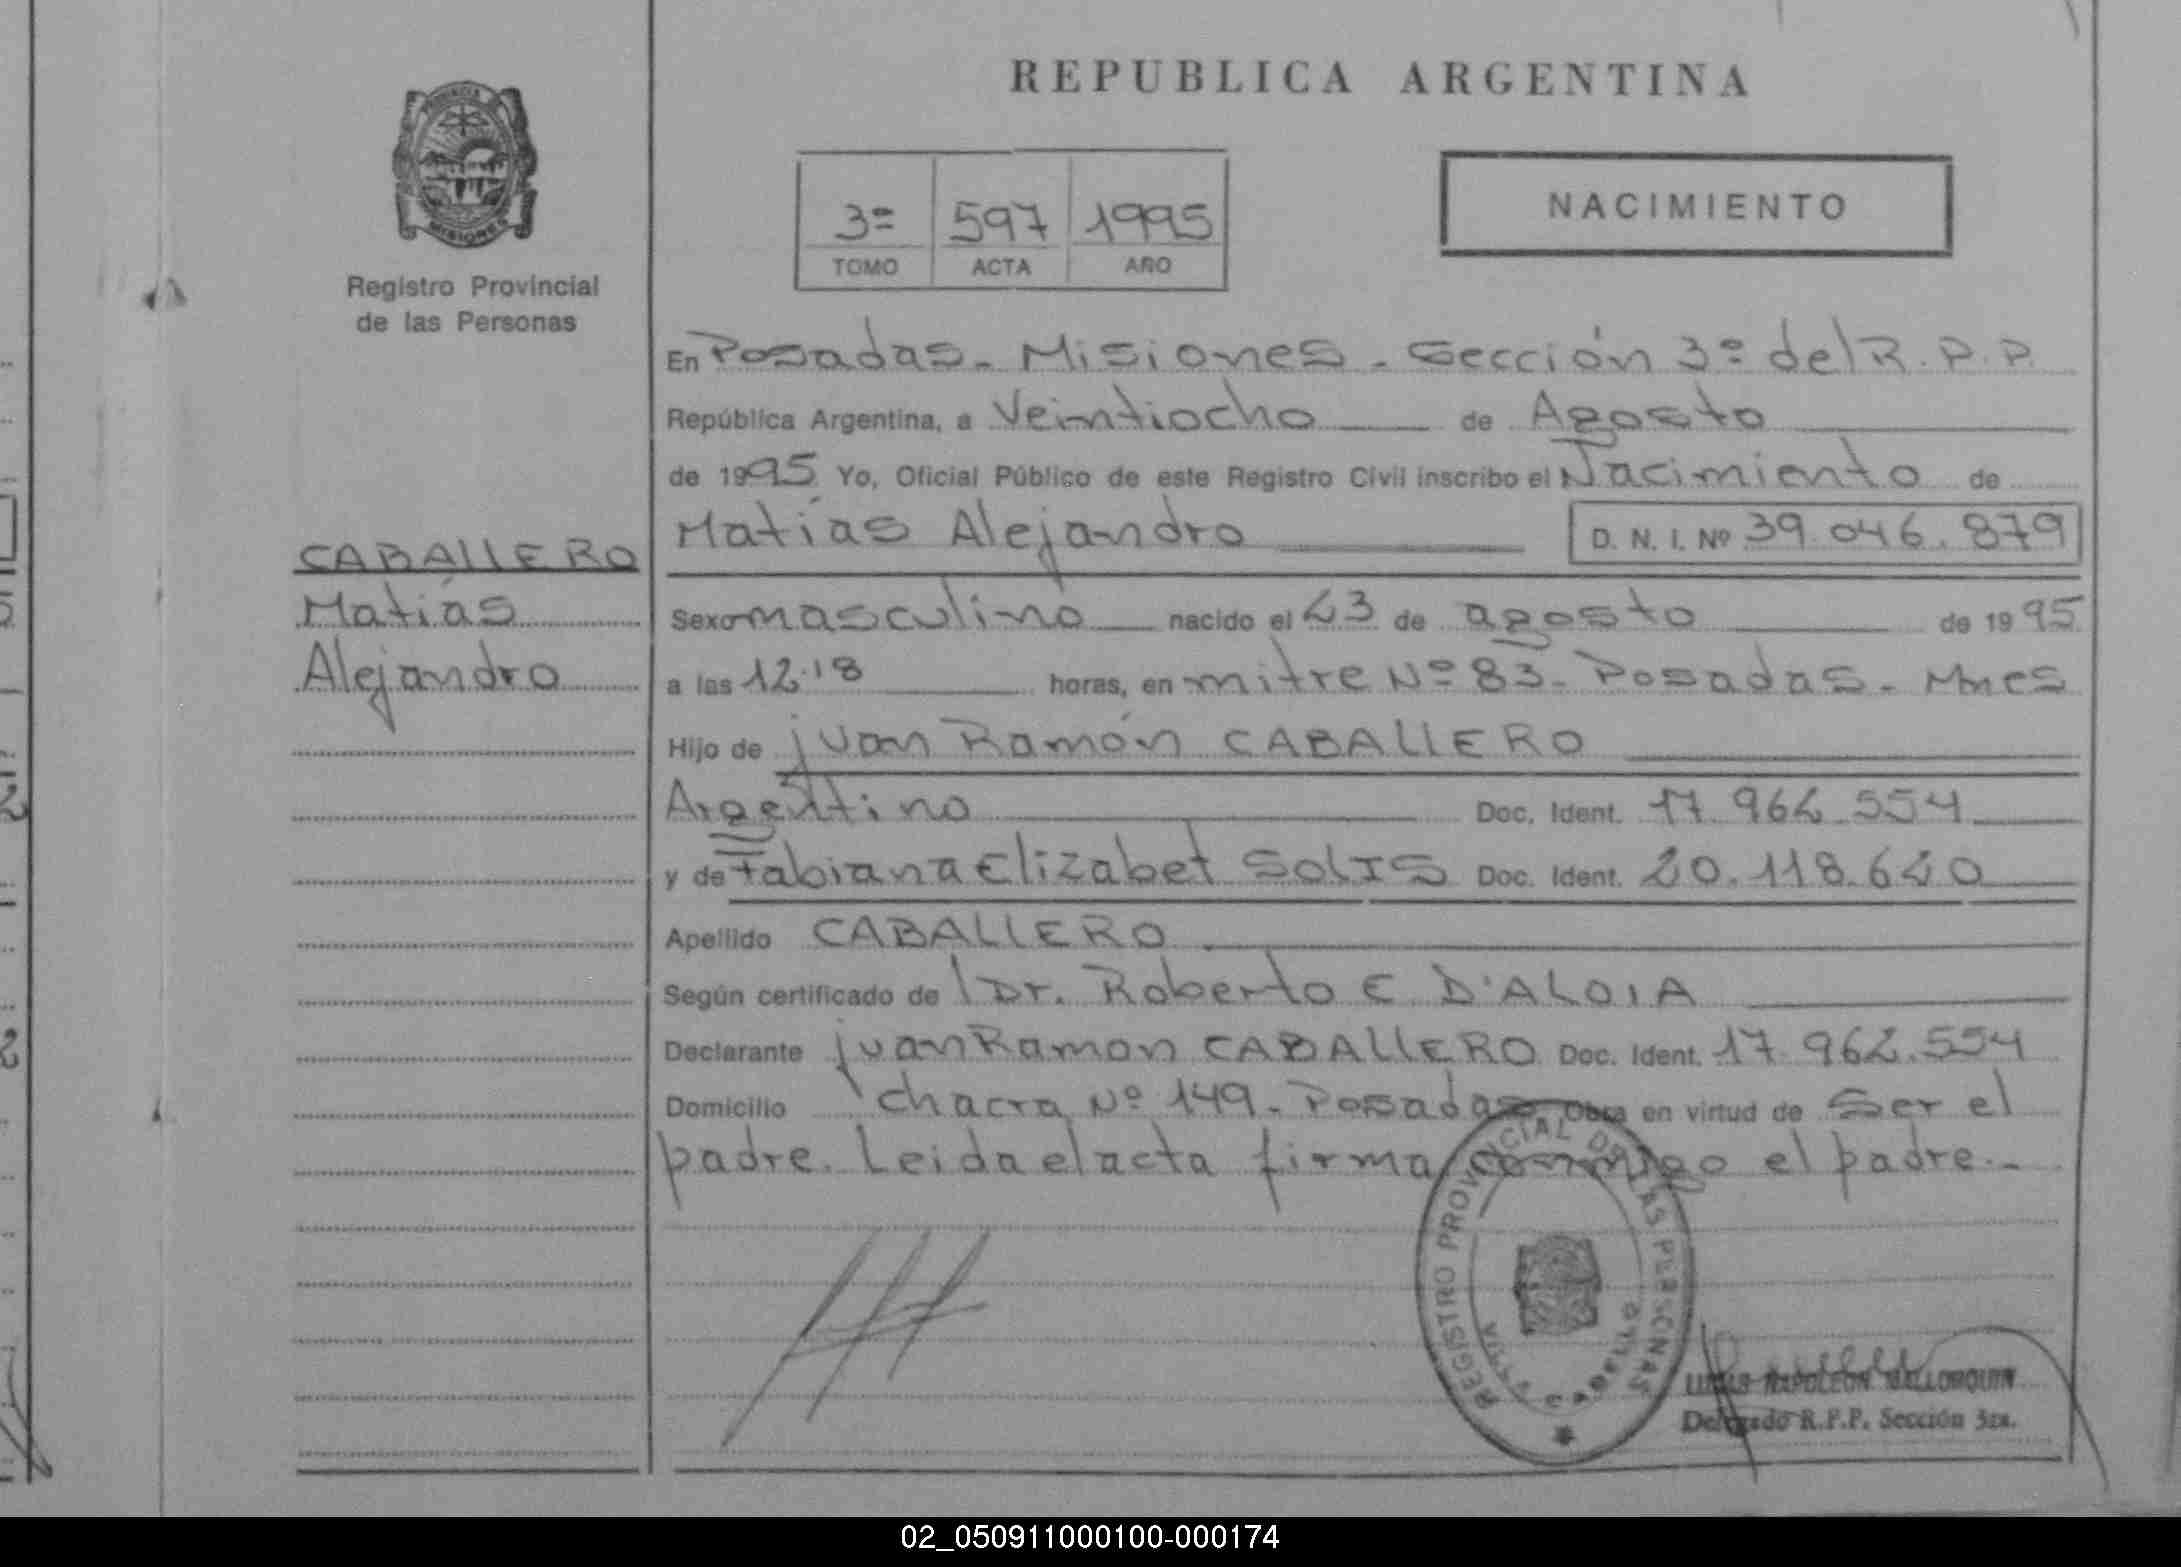 REPUBLICA ARGENTINA
PROVINCIA DE
MISIONES
Registro Provincial
de las Personas
3ª 597 1995
TOMO ACTA AÑO
NACIMIENTO
En Posadas - Misiones - Sección 3ª del R.P.P.
República Argentina, a Veintiocho de Agosto
de 1995 Yo, Oficial Público de este Registro Civil inscribo el Nacimiento de
Matías Alejandro D. N. I. Nº 39.046.879
CABALLERO
Matías
Alejandro
Sexo masculino nacido el 23 de agosto de 1995
a las 12.18 horas, en mitre Nº 83 - Posadas - Mnes
Hijo de juan Ramón CABALLERO
Argentino Doc. Ident. 17.962.554
y de Fabiana Elizabet SOLIS Doc. Ident. 20.118.620
Apellido CABALLERO
Según certificado de Dr. Roberto E. D'ALOIA
Declarante juan Ramon CABALLERO Doc. Ident. 17.962.554
Domicilio chacra Nº 149 - Posadas. Obra en virtud de Ser el
padre. Leida el acta firma conmigo el padre.-
REGISTRO PROVINCIAL DE LAS PERSONAS
NAPOLEON
Delegado R.P.P. Sección 3ra.
02_050911000100-000174